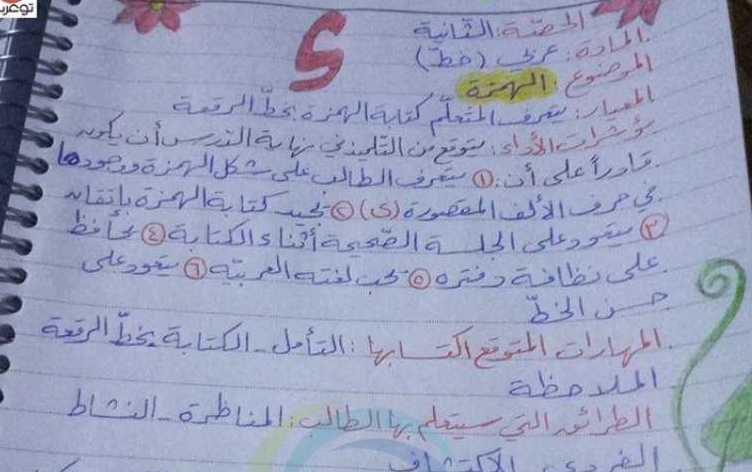 الحصّة: الثّانية
المادة: عربي (خطّ)
الموضوع: الهمزة
المعيار: يتعرف المتعلّم كتابة الهمزة بخطّ الرقعة
مؤشرات الأداء: يتوقع من التلميذ في نهاية الدرس أن يكون
قادراً على أن: ① يتعرف الطالب على شكل الهمزة ووجودها
في حرف الألف المقصورة (ى) ② يجيد كتابة الهمزة بإتقان
③ يتعود على الجلسة الصّحيحة أثناء الكتابة ④ يحافظ
على نظافة دفتره ⑤ يحب لغته العربيّة ⑥ يتعود على
حسن الخطّ
المهارات المتوقع اكتسابها: التأمل - الكتابة بخطّ الرقعة
الملاحظة
الطرائق التي سيتعلم بها الطالب: المناظرة - النشاط
الفردي - الاكتشاف